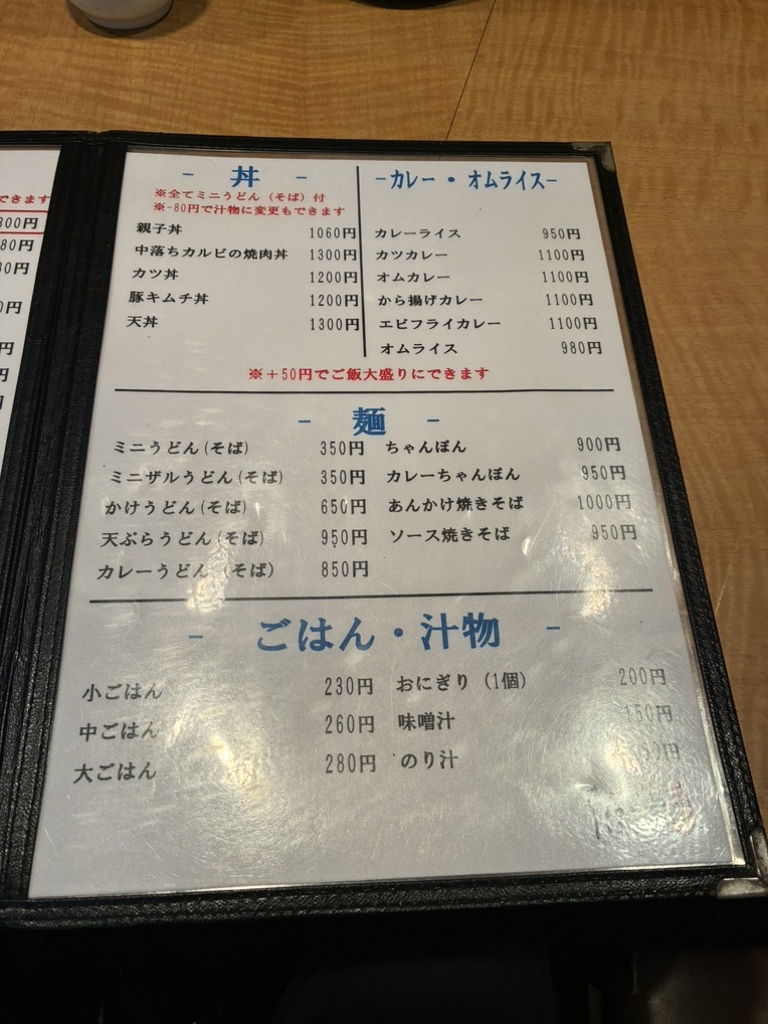 できます
300円
80円
30円
0円
円
円
- 丼 -
※全てミニうどん（そば）付
※-80円で汁物に変更もできます
親子丼 1060円
中落ちカルビの焼肉丼 1300円
カツ丼 1200円
豚キムチ丼 1200円
天丼 1300円
-カレー・オムライス-
カレーライス 950円
カツカレー 1100円
オムカレー 1100円
から揚げカレー 1100円
エビフライカレー 1100円
オムライス 980円
※＋50円でご飯大盛りにできます
- 麺 -
ミニうどん(そば) 350円
ミニザルうどん(そば) 350円
かけうどん(そば) 650円
天ぷらうどん(そば) 950円
カレーうどん (そば) 850円
ちゃんぽん 900円
カレーちゃんぽん 950円
あんかけ焼きそば 1000円
ソース焼きそば 950円
- ごはん・汁物 -
小ごはん 230円
中ごはん 260円
大ごはん 280円
おにぎり（1個） 200円
味噌汁 150円
のり汁